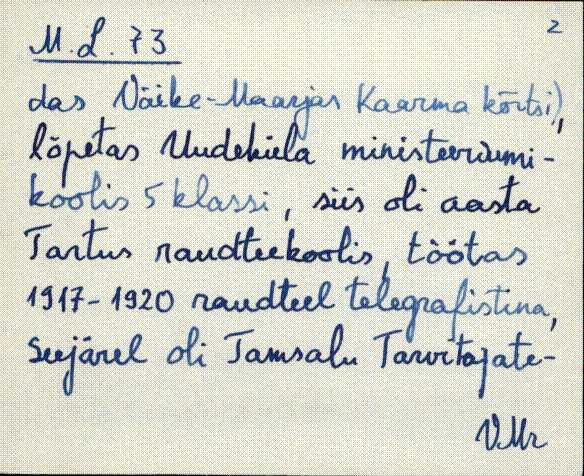 2
M.L. 73
das Väike-Maarjas Kaarma kõrtsi),
lõpetas Uudeküla ministeeriumi-
koolis 5 klassi, siis oli aasta
Tartus raudteekoolis, töötas
1917-1920 raudteel telegrafistina,
seejärel oli Tamsalu Tarvitajate-
VMr